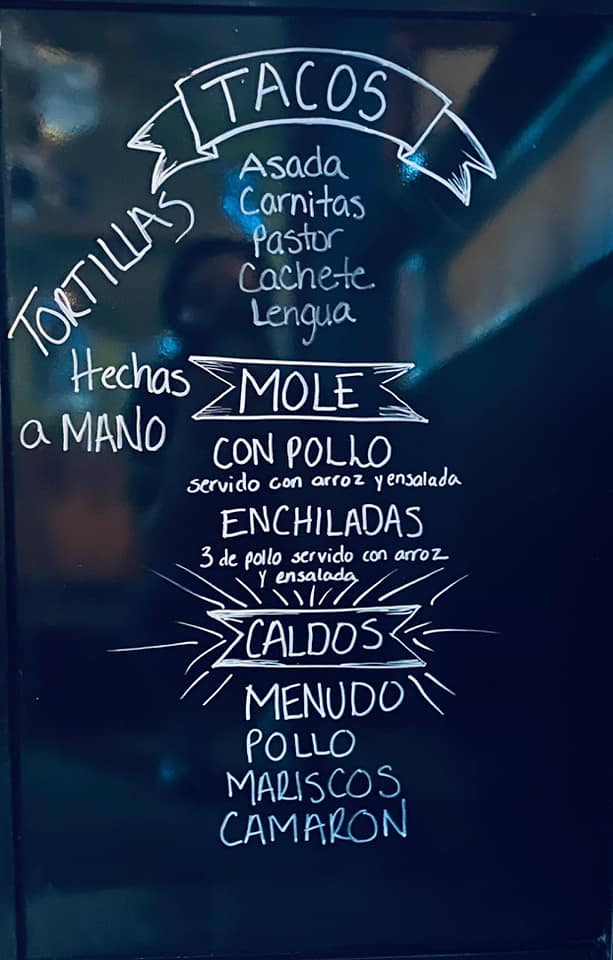 TACOS
Asada
Carnitas
Pastor
Cachete
Lengua
TORTILLAS
Hechas
a MANO
MOLE
CON POLLO
servido con arroz y ensalada
ENCHILADAS
3 de pollo servido con arroz
y ensalada
CALDOS
MENUDO
POLLO
MARISCOS
CAMARON